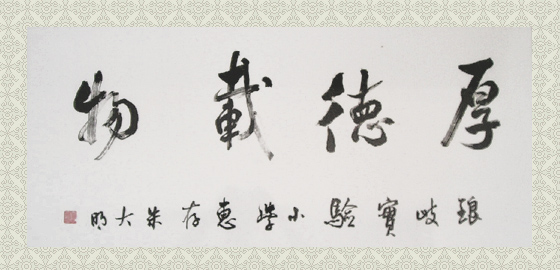 厚德載物
琅岐實驗小學惠存朱大明